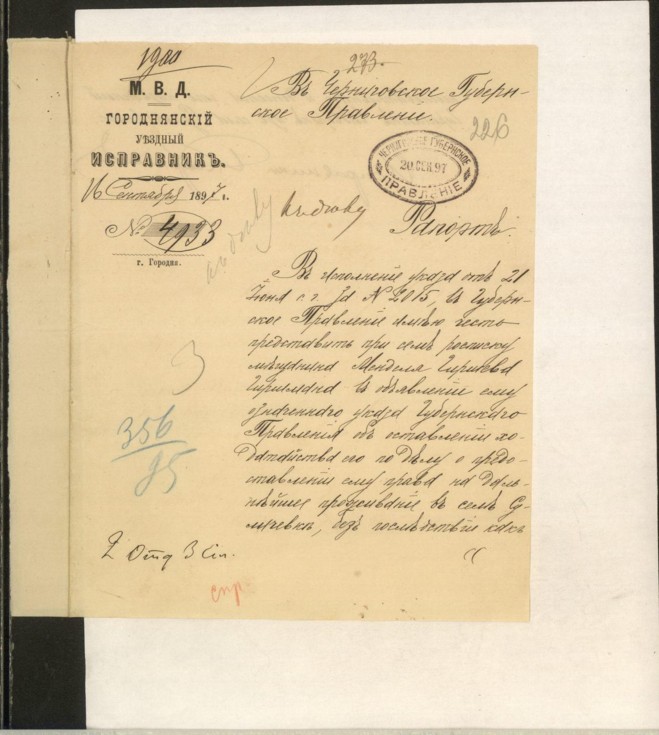 1900
М. В. Д.
ГОРОДНЯНСКІЙ
УѢЗДНЫЙ
ИСПРАВНИКЪ.
16 Сентября 1897 г.
№ 4933
г. Городня.
273.
Въ Черниговское Губерн-
ское Правленіе.
226
ЧЕРНИГОВСКОЕ ГУБЕРНСКОЕ
20 СЕН. 97
ПРАВЛЕНІЕ
къ дѣлу
къ дѣлу
Рапортъ.
Въ исполненіе указа отъ 21
Іюня с. г. за № 2015, въ Губерн-
ское Правленіе имѣю честь
представить при семъ росписку
мѣщанина Менделя
въ объявленіи ему
означеннаго указа Губернскаго
Правленія объ оставленіи хо-
датайства его по дѣлу о предо-
ставленіи ему права на даль-
нѣйшее проживаніе въ селѣ
безъ послѣдствій какъ
3
356
85
2 Отд 3 Ст.
спр